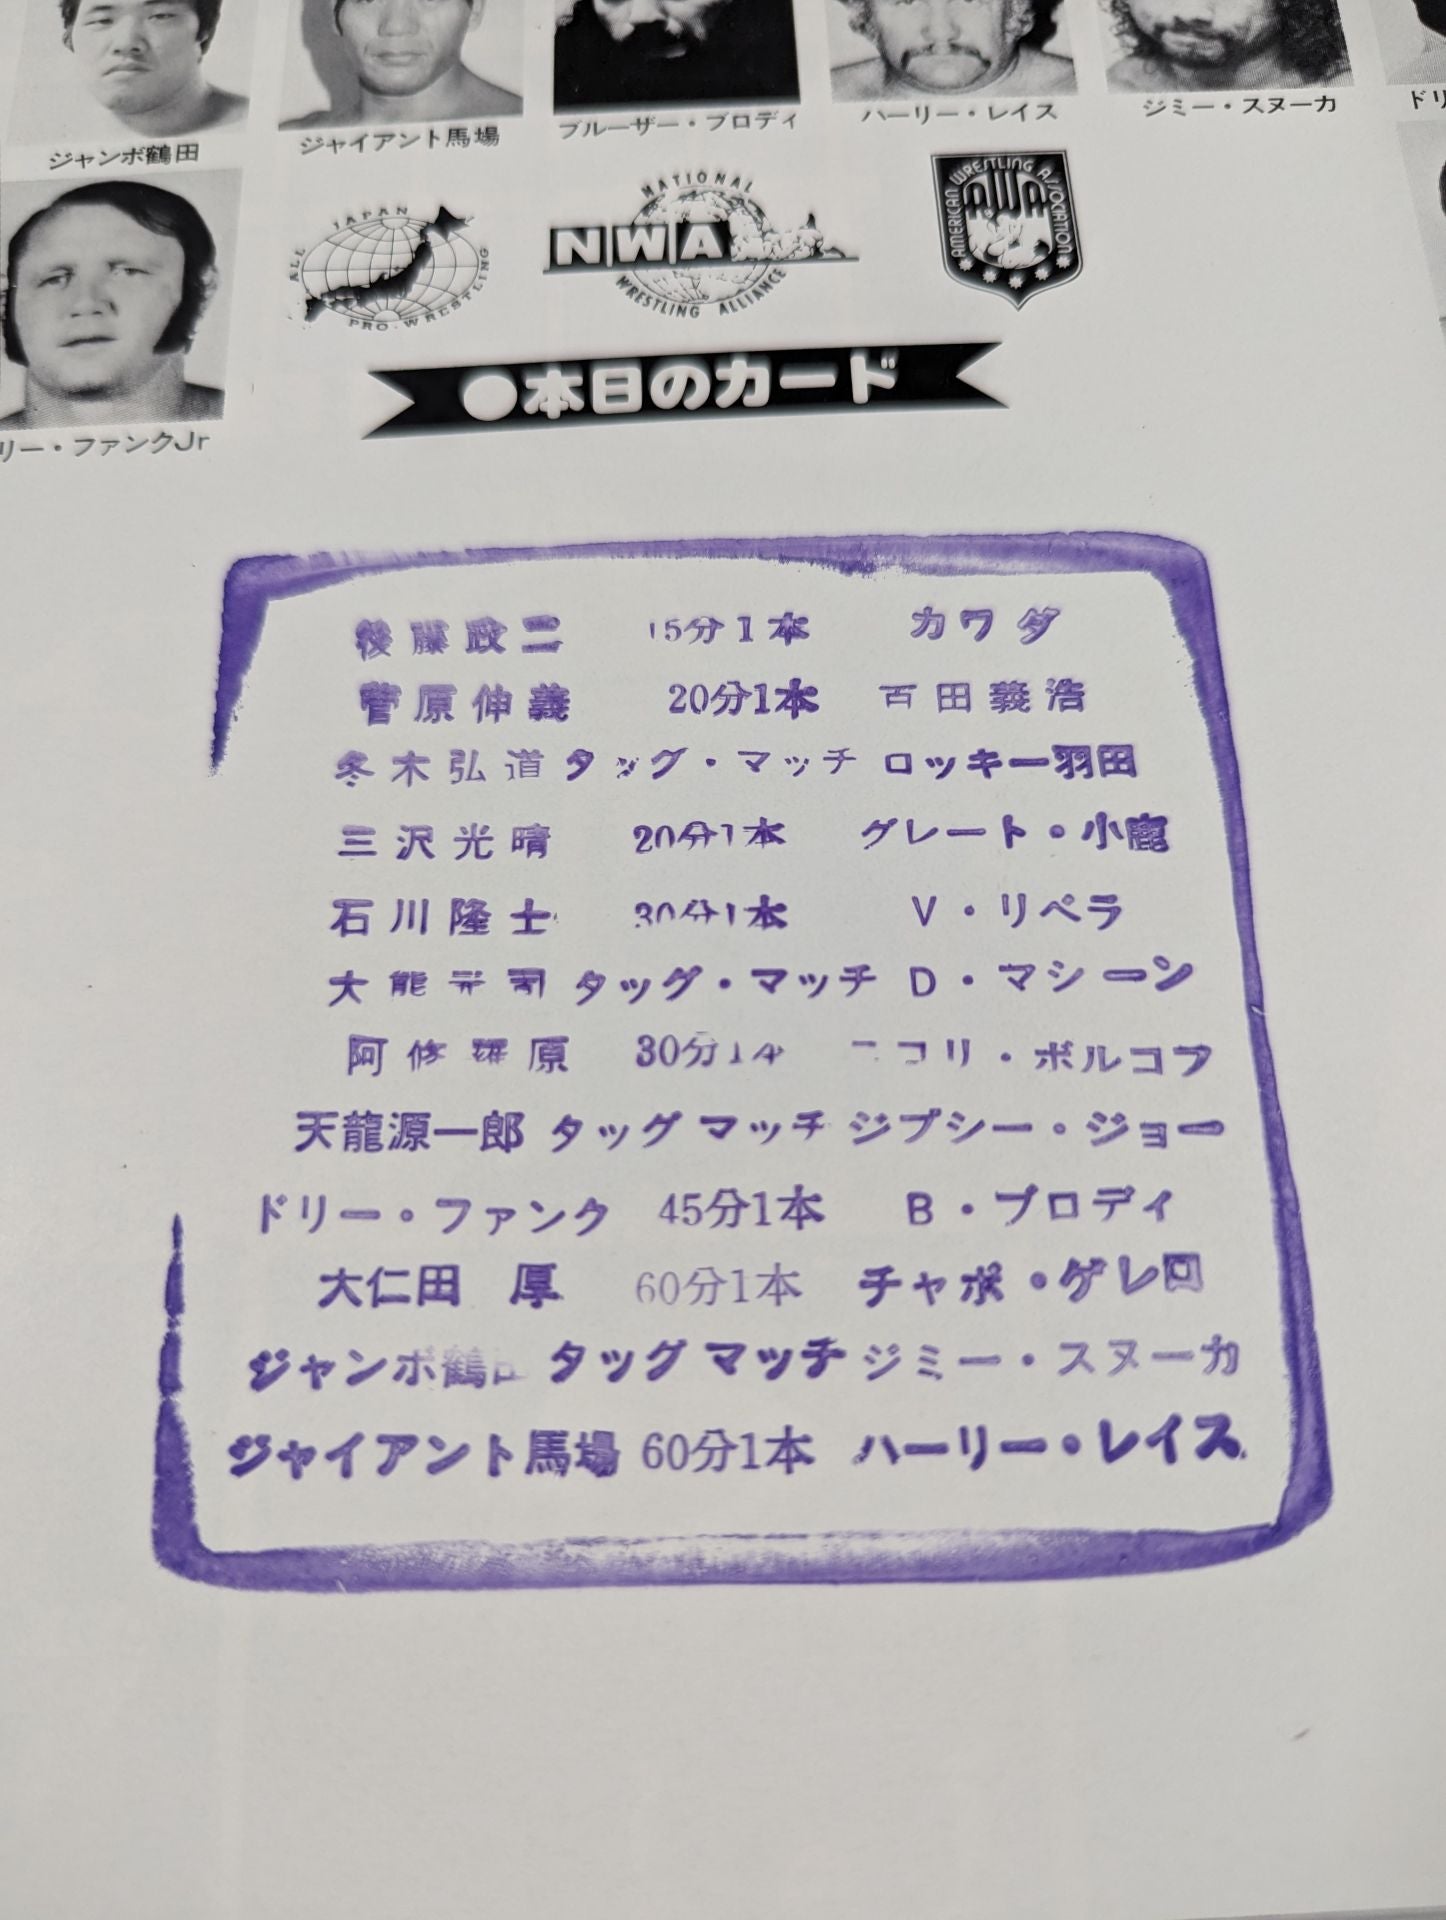 ジャンボ鶴田
ジャイアント馬場
ブルーザー・ブロディ
ハーリー・レイス
ジミー・スヌーカ
ドリ
リー・ファンクJr
ALL JAPAN PRO-WRESTLING
NATIONAL
NWA
WRESTLING ALLIANCE
AMERICAN WRESTLING ASSOCIATION
AWA
●本日のカード
後藤政二 15分1本 カワダ
菅原伸義 20分1本 百田義浩
冬木弘道 タッグ・マッチ ロッキー羽田
三沢光晴 20分1本 グレート・小鹿
石川隆士 30分1本 V・リベラ
大熊元司 タッグ・マッチ D・マシーン
阿修羅原 30分1本 ニコリ・ボルコフ
天龍源一郎 タッグ マッチ ジプシー・ジョー
ドリー・ファンク 45分1本 B・ブロディ
大仁田 厚 60分1本 チャボ・ゲレロ
ジャンボ鶴田 タッグ マッチ ジミー・スヌーカ
ジャイアント馬場 60分1本 ハーリー・レイス